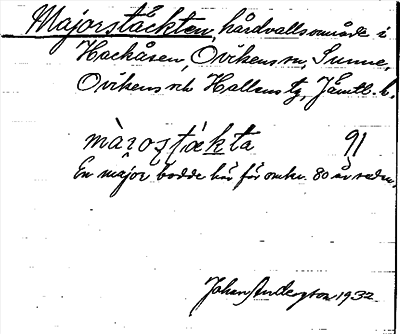 Majorstäckten, hårdvallsområde i
Hackåsen, Ovikens sn, Sunne,
Ovikens och Hallens tg, Jämtl. l.
màrosţäkta 91
En major bodde här för omkr. 80 år sedan.
Johan Anderzton 1932